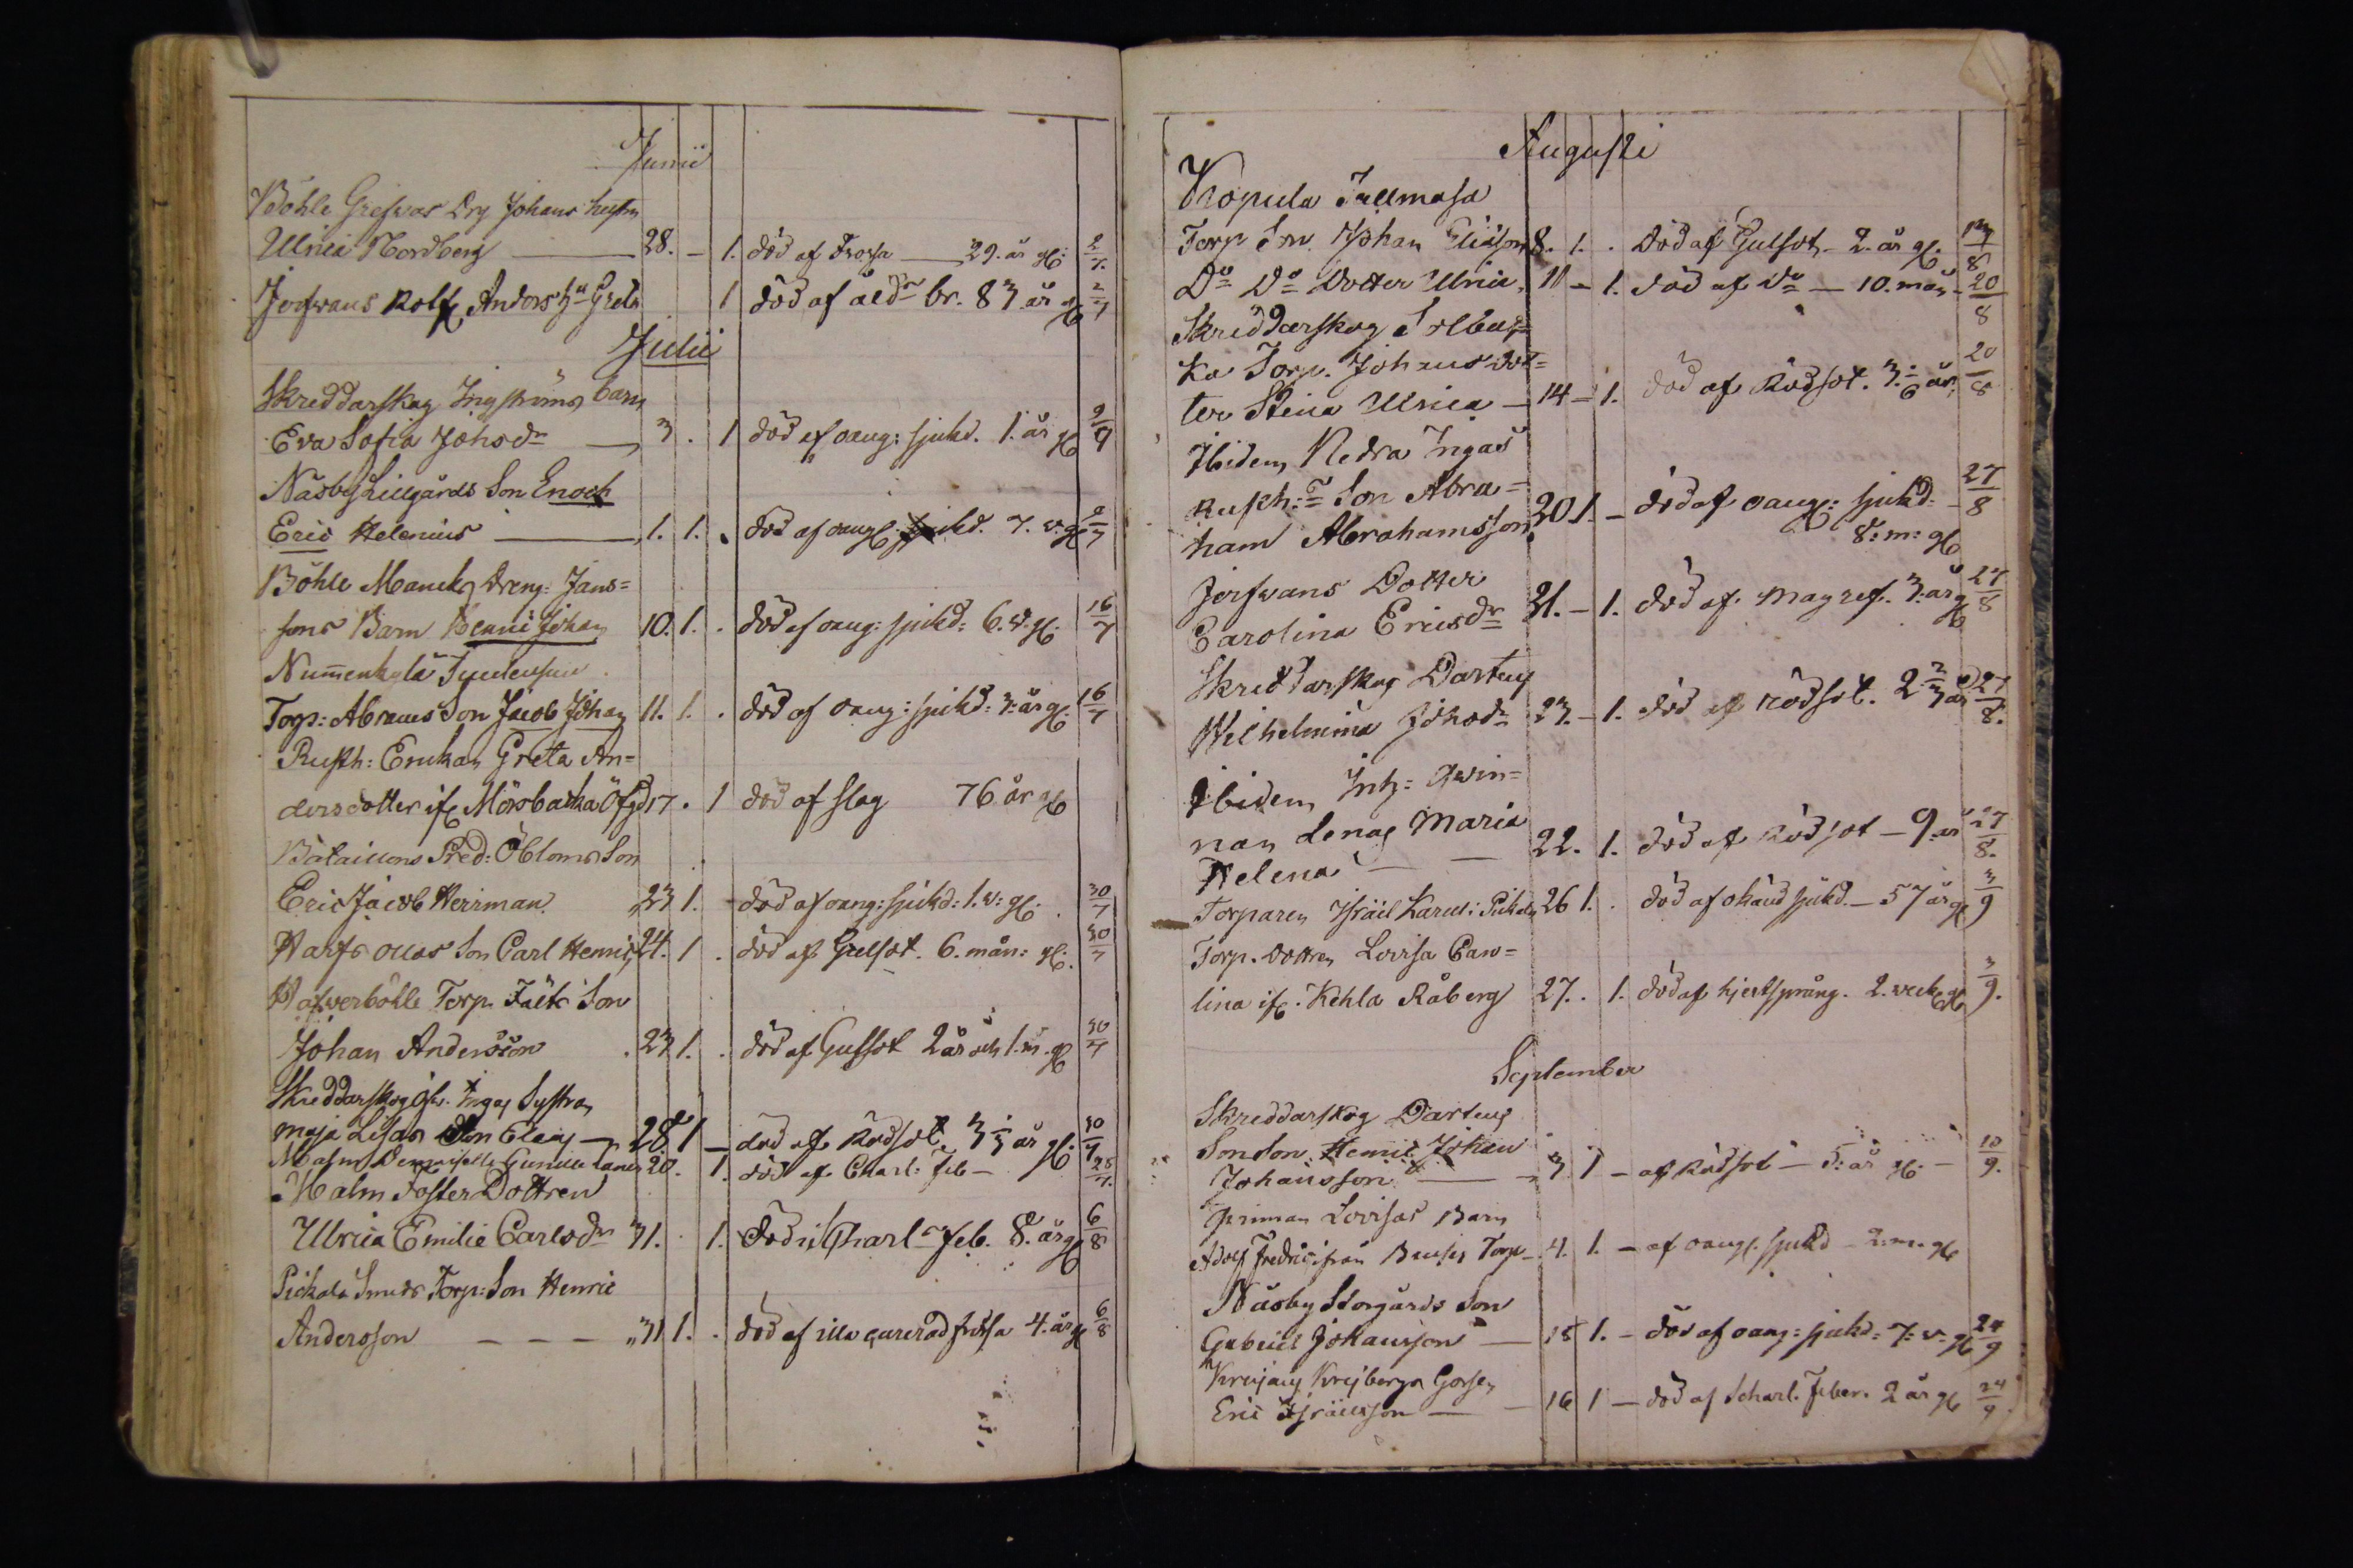 Junii
Böhle Grefwas Drg Johans hustru
Ulrica Nordberg — 28. – 1. död af Frossa — 29. år gl: 2/7.
Jorfwans Rolfs Anders hu Greta 1 död af åldr br. 83 år gl 2/7
Julii
Skreddarskog Ingströms barn
Eva Sofia Johsdr — 3 . 1 död af oang: sjukd. 1. år gl 9/7
Näsby Lillgårds Son Enoch
Eric Helenius — 1. 1. . död af oang: sjukd. 7. v. gl 9/7
Böhle Mancks Dreng: Jans=
sons Barn Henric Johan 10. 1. . död af oang: sjukd: 6. v. gl: 16/7
Torp: Abrams Son Jacob Johan 11. 1. . död af oang: sjukd: 3. år gl: 16/7
Rusth: Enckan Greta An=
dersdotter if Mörsbacka Öfgd 17 . 1 död af slag 76 år gl
Bataillons Pred: Öbloms Son
Eric Jacob Herrman 23 1. – död af oang: sjukd: 1. v: gl: . 30/7
Harfs Ollas Son Carl Henric 24. 1 . död af Gulsot. 6. mån: gl: 30/7
Hafverböhle Torp. Fält Son
Johan Andersson . 23 1. . död af Gulsot 2 år och 1. m. gl 30/7
Skreddarskog Ingas Systran
Maja Lisas Son Claas — 28 1 – död af Rödsot. 3 år gl: 30/7
Malm Demoiselle Gunilla 20. 1. död af Charl: Feb – 28/7.
Malm Foster Dottren
Ulrica Emilie Carlsdr 31. . 1. död i Charl Feb. 8. år gl 6/8
Pickala Smeds Torp: Son Henric
Andersson – – – 31 1. . död af illa curerad frossa 4. år gl 6/8
Augusti
Kopula Tallmosa
Torp Son Johan Eliasson 8. 1. . Död af Gulsot – 2. år gl. /8
Do Do Dotter Ulrica 11 – 1. död af Do — 10. mån – 20/8
Skreddarskog Solbac=
ka Torp. Johans dot=
ter Stina Ulrica — 14 – 1. död af Rödsot. 3. år 20/8
Ibidem Nedra Ingas
Rusth: Son Abra=
ham Abrahamsson 20 1. – död af oang: sjukd – 27/8
8: m: gl
Jorfwans Dotter
Carolina Ericsdr 21. – 1. död af Magref. 3. år gl 27/8
Skreddarskog Dartens
Wilhelmina Johsdr 23. – 1. död af rödsot. 2 2/3 år 27/8.
Ibidem Inh: Qwin=
nan Lenas Maria
Helena — 22. 1. död af Rödsot — 9. år 27/8.
Torparen Israel Karel: Pickala 26 1. . död af okänd sjukd. — 57 år gl 3/9
Torp. dottren Lovisa Caro=
lina if. Kehla Råberg 27. . 1. död af hjertsprång. 2. veck gl 3/9.
September
Skreddarskog Dartens
Sonson Henric Johan
Johansson — 3 1 – af Rödsot – 5: år gl. – 10/9.
Pinman Lovisas Barn
Adolf Fredric från Torp – 4. 1. – af oang. sjukd – 2. m. gl
Näsby Storgårds Son
Gabriel Johansson — 15 1. – död af oang: sjukd: 7: v: gl 24/9
Eric Israelsson — 16 1 — död af Scharl. Feber. 2 år gl 24/9.